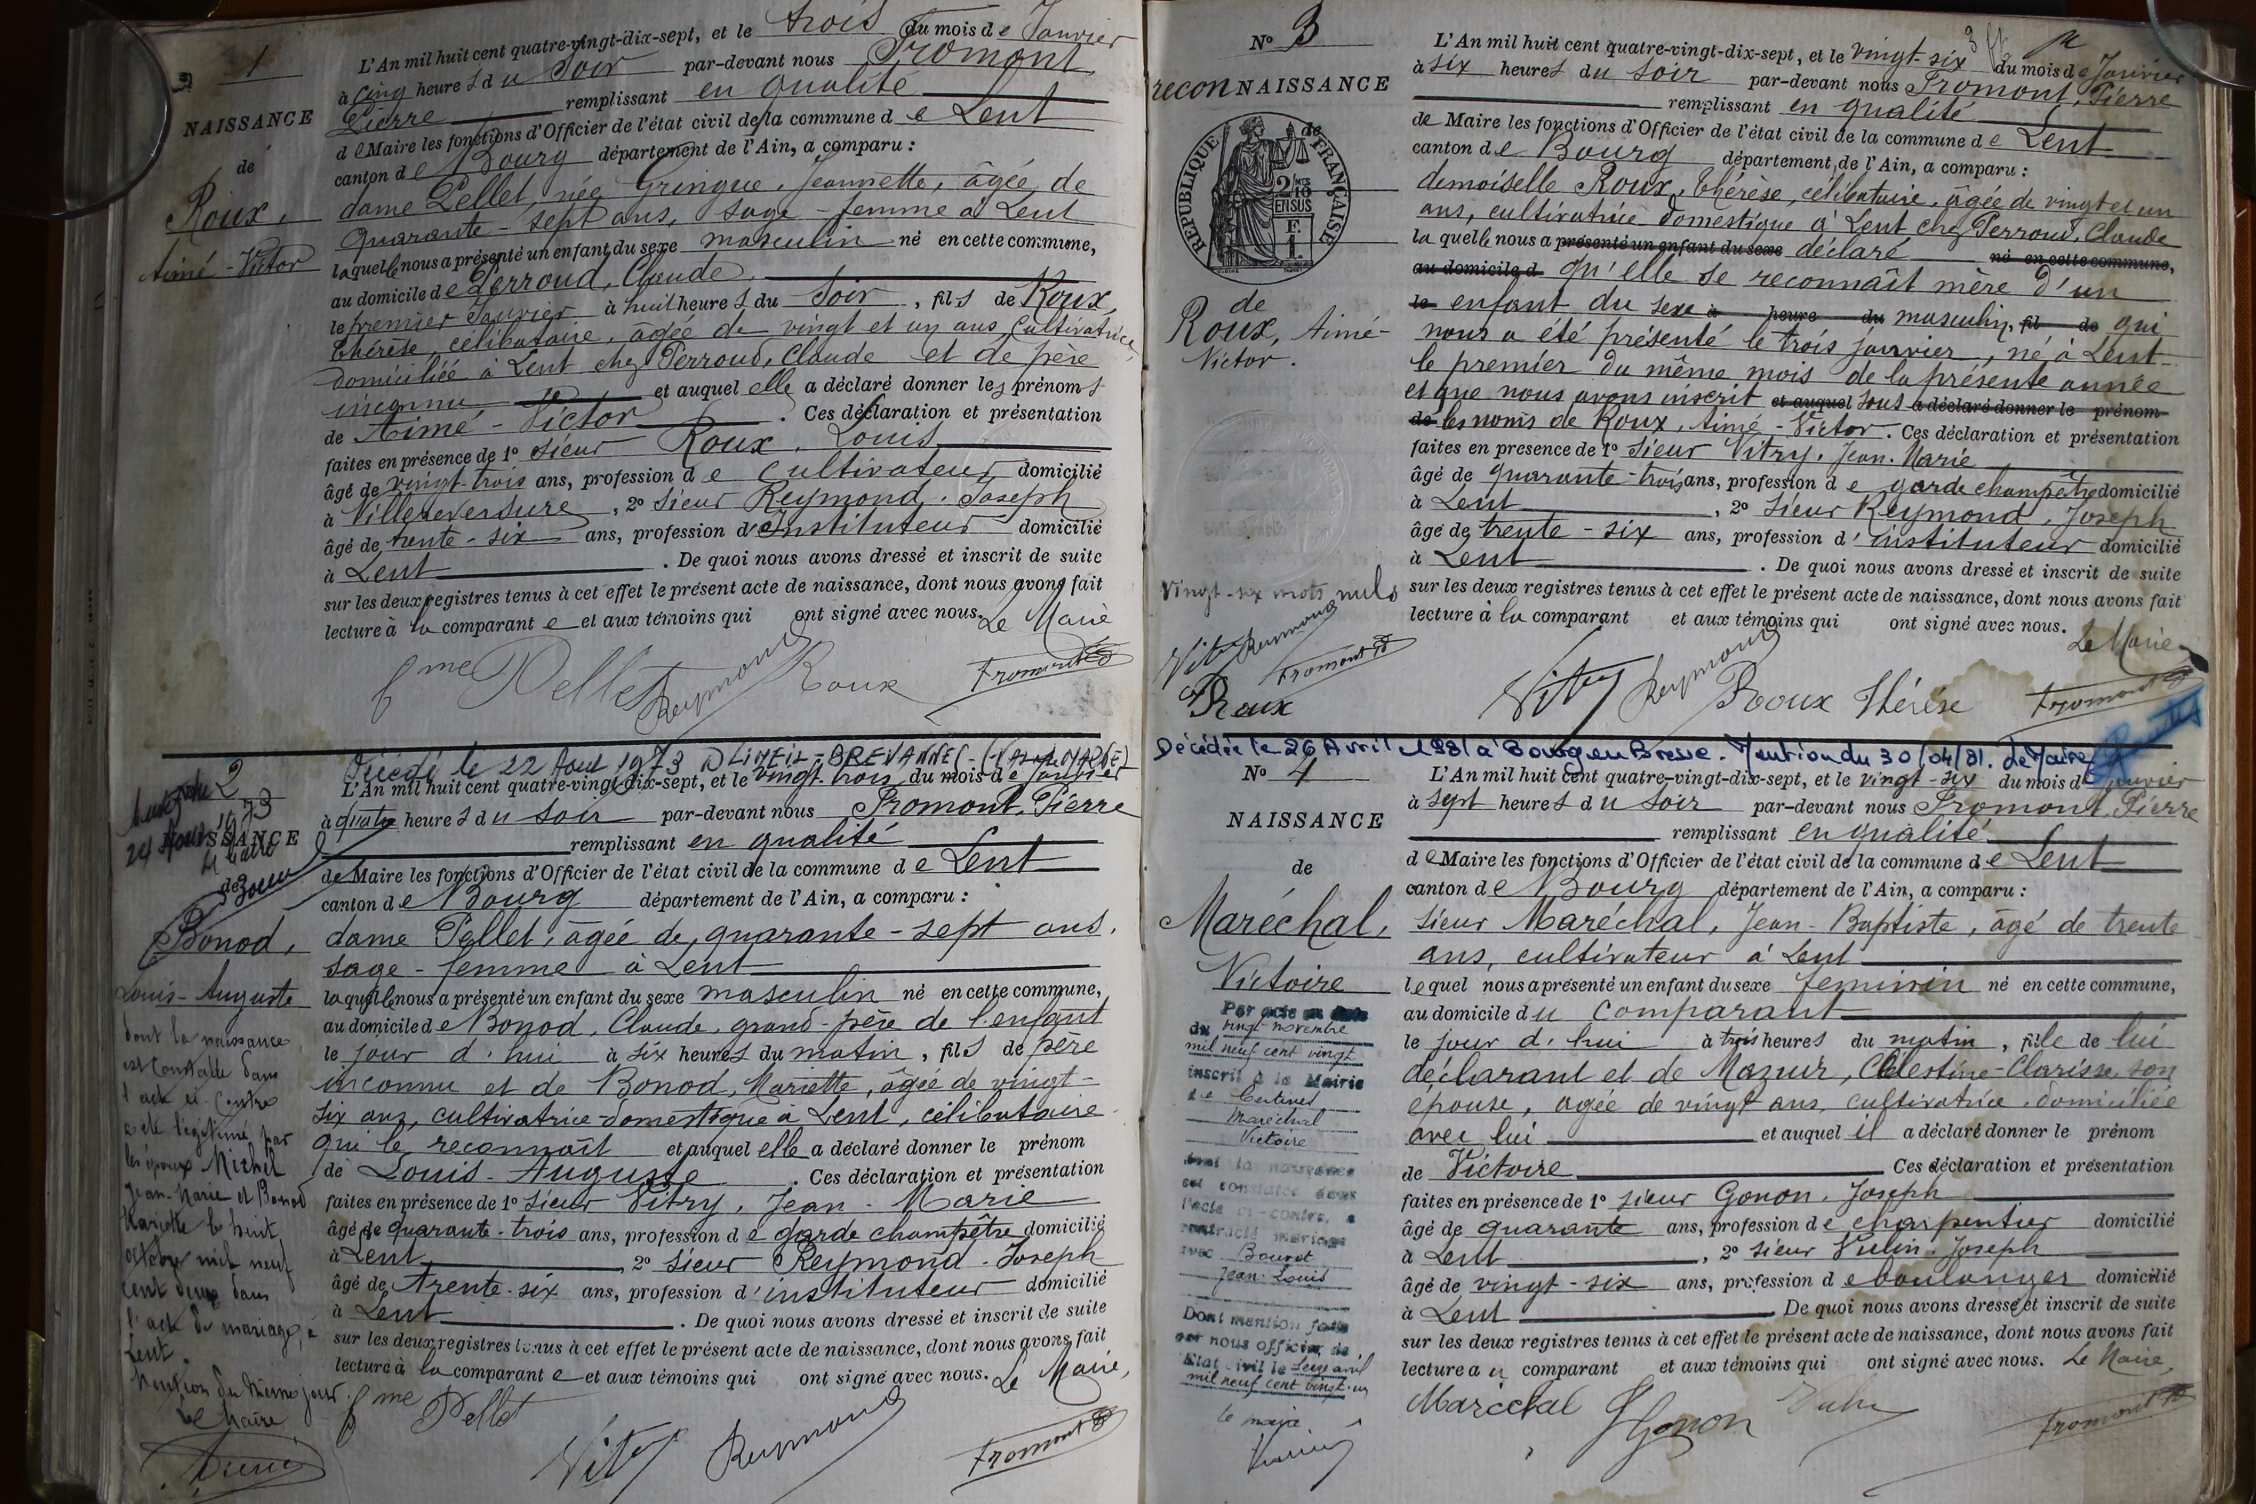 1
NAISSANCE
de
Roux,
Aimé-Victor
L'An mil huit cent quatre-vingt-dix-sept, et le trois du mois de Janvier
à cinq heures du Soir par-devant nous Fromont,
Pierre remplissant en qualité
de Maire les fonctions d'Officier de l'état civil de la commune de Lent
canton de Bourg département de l'Ain, a comparu :
dame Pellet, née Gringue, Jeannette, âgée de
quarante-sept ans, sage-femme à Lent
laquelle nous a présenté un enfant du sexe masculin né en cette commune,
au domicile de Perroud, Claude
le premier Janvier à huit heures du Soir, fils de Roux,
Thérèse, célibataire, âgée de vingt et un ans, cultivatrice,
domiciliée à Lent chez Perroud, Claude et de père
inconnu et auquel elle a déclaré donner les prénoms
de Aimé-Victor. Ces déclaration et présentation
faites en présence de 1º sieur Roux, Louis
âgé de vingt-trois ans, profession de cultivateur domicilié
à Villereversure, 2º sieur Reymond, Joseph
âgé de trente-six ans, profession d'Instituteur domicilié
à Lent. De quoi nous avons dressé et inscrit de suite
sur les deux registres tenus à cet effet le présent acte de naissance, dont nous avons fait
lecture à la comparante et aux témoins qui ont signé avec nous. Le Maire
fme Pellet Reymond Roux Fromont P
Décédé le 22 Aout 1973 à LIMEIL-BREVANNES (VAL de MARNE)
2
NAISSANCE
24 Aout 1973
Le Maire
de
Bonod,
Louis-Auguste
dont la naissance
est constatée dans
l'acte ci-contre
a été légitimé par
les époux Michel
Jean-Marie et Bonod
Mariette le huit
octobre mil neuf
cent deux dans
l'acte de mariage, à
Lent.
Mention du même jour.
Le Maire
L'An mil huit cent quatre-vingt-dix-sept, et le vingt-trois du mois de Janvier
à quatre heures du Soir par-devant nous Fromont, Pierre
remplissant en qualité
de Maire les fonctions d'Officier de l'état civil de la commune de Lent
canton de Bourg département de l'Ain, a comparu :
dame Pellet, âgée de quarante-sept ans,
sage-femme à Lent
laquelle nous a présenté un enfant du sexe masculin né en cette commune,
au domicile de Bonod, Claude, grand-père de l'enfant
le jour d'hui à six heures du matin, fils de père
inconnu et de Bonod, Mariette, âgée de vingt-
six ans, cultivatrice-domestique à Lent, célibataire
qui le reconnaît et auquel elle a déclaré donner le prénom
de Louis-Auguste. Ces déclaration et présentation
faites en présence de 1º sieur Vitry, Jean-Marie
âgé de quarante-trois ans, profession de garde champêtre domicilié
à Lent, 2º sieur Reymond, Joseph
âgé de trente-six ans, profession d'instituteur domicilié
à Lent. De quoi nous avons dressé et inscrit de suite
sur les deux registres tenus à cet effet le présent acte de naissance, dont nous avons fait
lecture à la comparante et aux témoins qui ont signé avec nous. Le Maire,
fme Pellet
Vitry Reymond Fromont P
Nº 3
reconNAISSANCE
REPUBLIQUE FRANÇAISE
2/10 EN SUS
de
Roux, Aimé-
Victor.
Vingt-six mots nuls
Vitry Reymond
Fromont P
Roux
L'An mil huit cent quatre-vingt-dix-sept, et le vingt-six du mois de Janvier
à six heures du soir par-devant nous Fromont, Pierre
remplissant en qualité
de Maire les fonctions d'Officier de l'état civil de la commune de Lent
canton de Bourg département de l'Ain, a comparu :
demoiselle Roux, Thérèse, célibataire, âgée de vingt et un
ans, cultivatrice domestique à Lent chez Perroud, Claude
laquelle nous a présenté un enfant du sexe déclaré né en cette commune,
au domicile d qu'elle se reconnaît mère d'un
le enfant du sexe à heure du masculin, fil de qui
nous a été présenté le trois janvier, né à Lent
le premier du même mois de la présente année
et que nous avons inscrit et auquel sous a déclaré donner le prénom
de les noms de Roux, Aimé-Victor. Ces déclaration et présentation
faites en présence de 1º sieur Vitry, Jean-Marie
âgé de quarante-trois ans, profession de garde champêtre domicilié
à Lent, 2º sieur Reymond, Joseph
âgé de trente-six ans, profession d'instituteur domicilié
à Lent. De quoi nous avons dressé et inscrit de suite
sur les deux registres tenus à cet effet le présent acte de naissance, dont nous avons fait
lecture à la comparant et aux témoins qui ont signé avec nous.
Le Maire
Vitry Reymond Roux Thérèse Fromont P
Décédée le 26 Avril 1981 à Bourg en Bresse. Mention du 30/04/81. Le Maire
Nº 4
NAISSANCE
de
Maréchal,
Victoire
Par acte en date
du vingt novembre
mil neuf cent vingt
inscrit à la Mairie
de
Maréchal
Victoire
dont la naissance
est constatée dans
l'acte ci-contre, a
contracté mariage
avec Bouvet
Jean-Louis
Dont mention faite
par nous officier de
l'Etat civil le
mil neuf cent vingt-un
Le maire
L'An mil huit cent quatre-vingt-dix-sept, et le vingt-six du mois de Janvier
à sept heures du soir par-devant nous Fromont, Pierre
remplissant en qualité
de Maire les fonctions d'Officier de l'état civil de la commune de Lent
canton de Bourg département de l'Ain, a comparu :
sieur Maréchal, Jean-Baptiste, âgé de trente
ans, cultivateur à Lent
lequel nous a présenté un enfant du sexe feminin né en cette commune,
au domicile du comparant
le jour d'hui à trois heures du matin, fille de lui
déclarant et de Mazuir, Célestine-Clarisse, son
epouse, agée de vingt ans, cultivatrice, domiciliée
avec lui et auquel il a déclaré donner le prénom
de Victoire Ces déclaration et présentation
faites en présence de 1º sieur Gonon, Joseph
âgé de quarante ans, profession de charpentier domicilié
à Lent, 2º sieur Vulin, Joseph
âgé de vingt-six ans, profession de boulanger domicilié
à Lent De quoi nous avons dressé et inscrit de suite
sur les deux registres tenus à cet effet le présent acte de naissance, dont nous avons fait
lecture au comparant et aux témoins qui ont signé avec nous. Le Maire,
Maréchal Gonon Vulin Fromont P